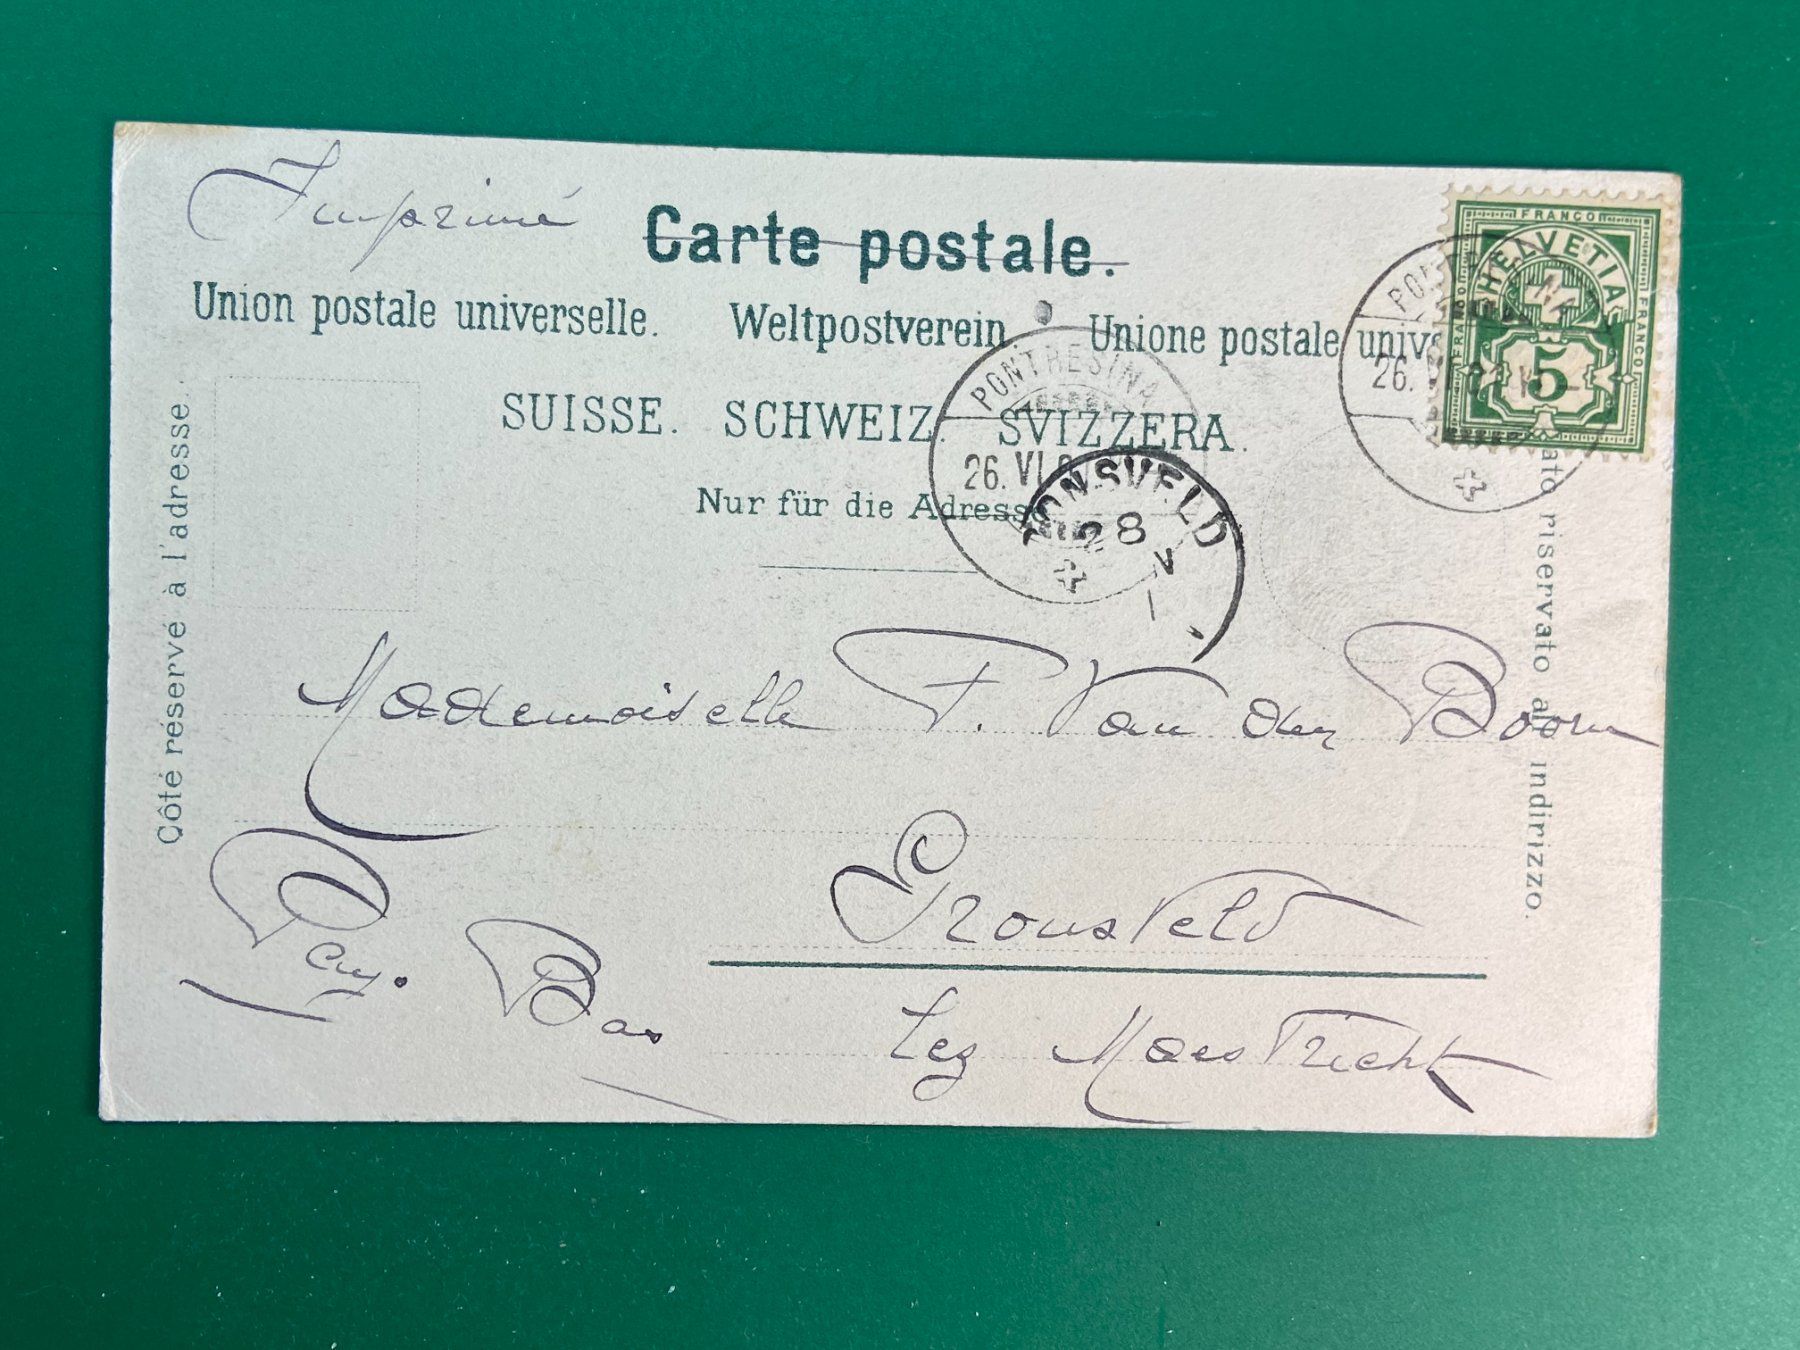 Imprimé
Carte postale.
Union postale universelle. Weltpostverein Unione postale
SUISSE. SCHWEIZ. SVIZZERA.
Nur für die Adresse
Côté réservé à l'adresse.
riservato all' indirizzo.
FRANCO
HELVETIA
FRANCO
FRANCO
5
PONTRESINA
26. VI
26. VI
28
Mademoiselle P. Van der Boorn
Gronsveld
Pay. Bas
lez Maestricht